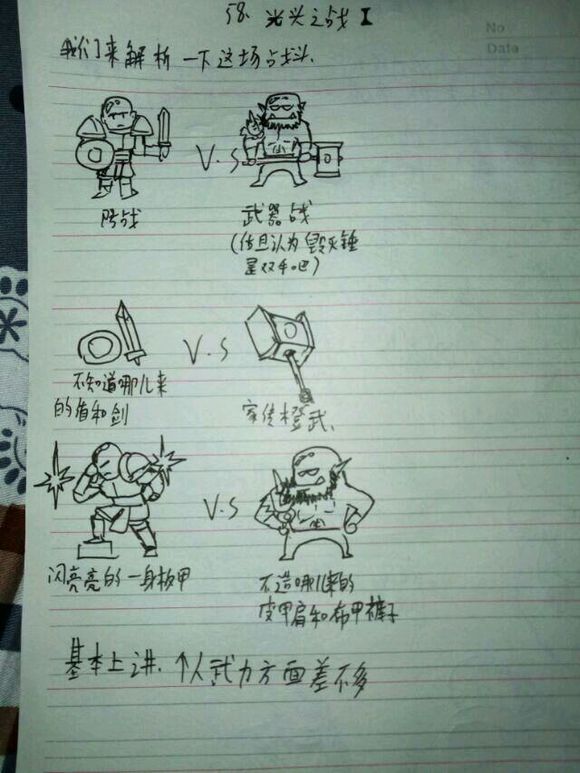 58. 光头之战 I
No
Date
我们来解析一下这场占战斗.
V.S
防战
武器战
(估且认为毁灭锤
是双手吧)
V.S
不知道哪儿来
的盾和剑
家传橙武.
V.S
闪亮亮的一身板甲
不造哪儿来的
皮甲肩和布甲裤子
基本上讲.个人武力方面差不多